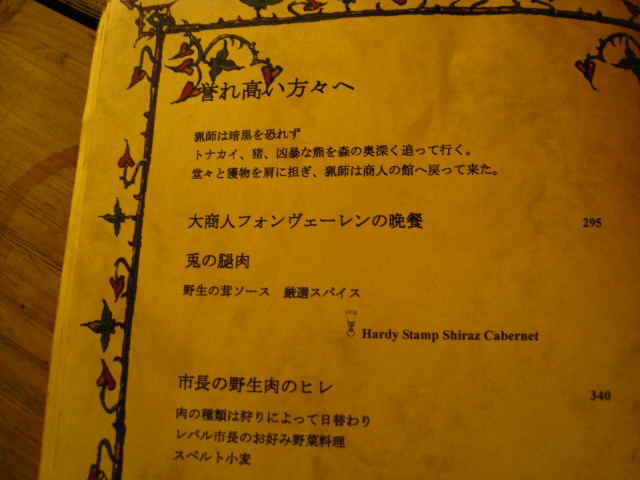 誉れ高い方々へ
猟師は暗黒を恐れず
トナカイ、猪、凶暴な熊を森の奥深く追って行く。
堂々と獲物を肩に担ぎ、猟師は商人の館へ戻って来た。
大商人フォンヴェーレンの晩餐 295
兎の腿肉
野生の茸ソース 厳選スパイス
Hardy Stamp Shiraz Cabernet
市長の野生肉のヒレ 340
肉の種類は狩りによって日替わり
レバル市長のお好み野菜料理
スペルト小麦